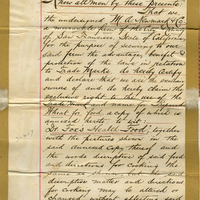 Know all men by these Presents
That we
the undersigned, M. A. Newmark & Co.
a mercantile firm of the City
of San Francisco State of California
for the purpose of securing to our
said firm the advantage benefit &
protection of the law in relation
to Trade Marks do hereby certify
and declare that we are the
owners of and do hereby claim the
exclusive right to the use of the
Trade Mark and name for
Wheat for food a copy of which is
annexed hereto to wit:
Dr Fox's Health Food together
with the pictures shown in the
said annexed copy thereof and
the words descriptive of said food
and directions for cooking the
same
descriptive matter and directions
for cooking may be altered or
changed without affecting such